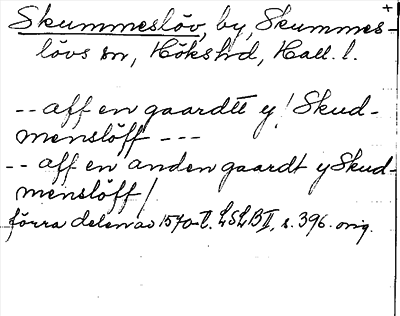 Skummeslöv, by, Skummes-
lövs sn, Hökshd, Hall. l.
-- aff en gaardtt y ! Skud-
menslöff ---
-- aff en anden gaardt y Skud-
menslöff /
förra delen av 1570-t. LSLB II, s. 396. orig.